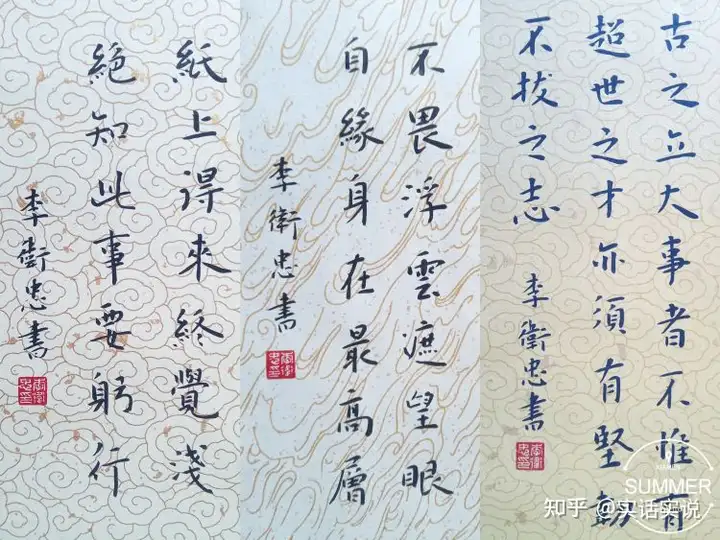 紙上得來終覺淺
絶知此事要躬行
李衛忠書
不畏浮雲遮望眼
自緣身在最高層
李衛忠書
古之立大事者不惟有
超世之才亦須有堅
不拔之志
李衛忠書
SUMMER
知乎 @实话实说